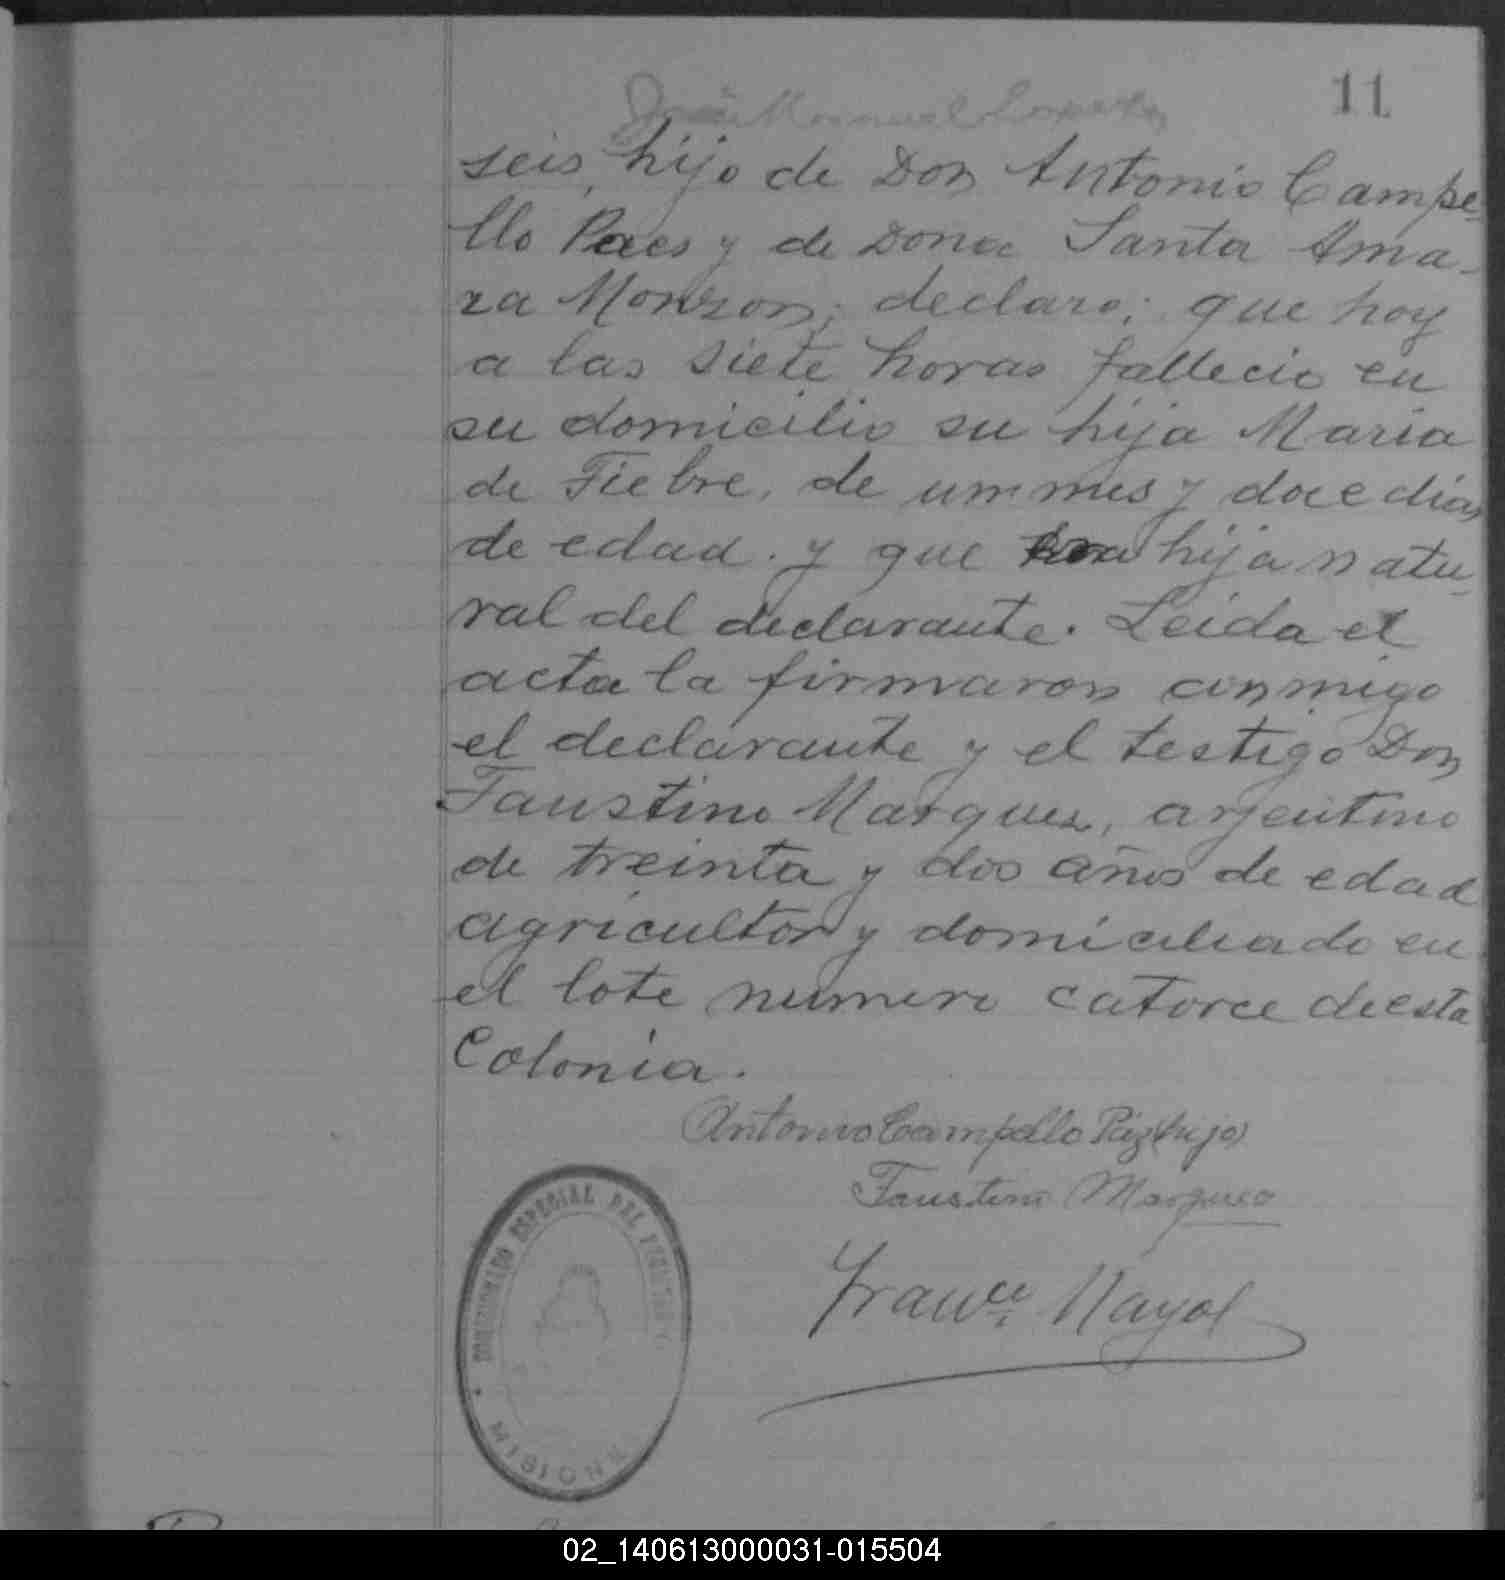 11
seis, hijo de Don Antonio Campe-
llo Paes y de Dona Santa Ama-
ra Monzon; declaro; que hoy
a las siete horas fallecio en
su domicilio su hija Maria
de Fiebre, de un mes y doce dias
de edad. y que era hija natu-
ral del declarante. Leida el
acta la firmaron conmigo
el declarante y el testigo Don
Faustino Marques, argentino
de treinta y dos años de edad
agricultor y domiciliado en
el lote numero catorce de esta
Colonia.
Antonio Campello Páz (hijo)
Faustino Marques
Franco. Mayol
ESPECIAL DEL
MISIONES
02_140613000031-015504